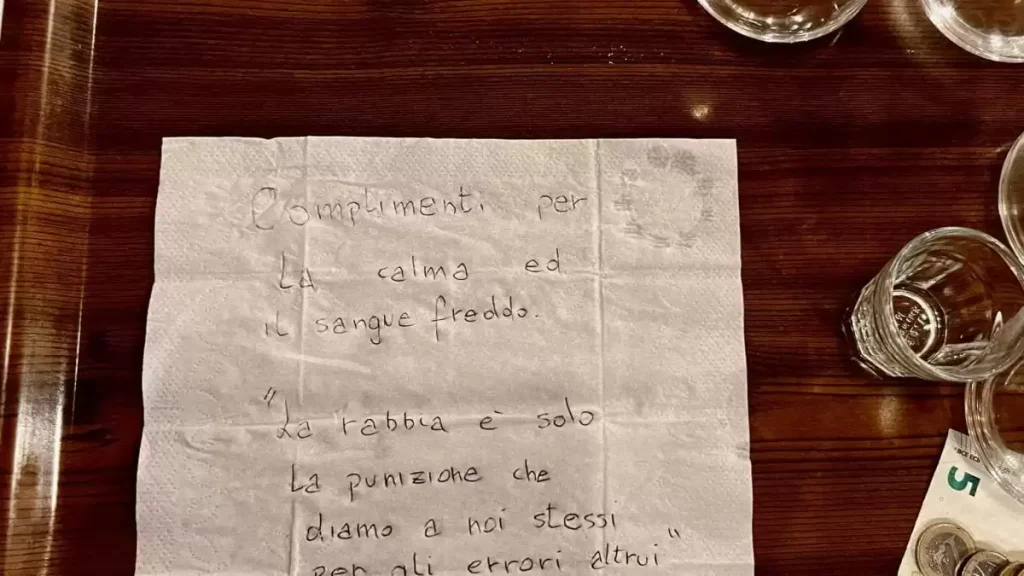 Complimenti per
La calma ed
il sangue freddo.
"La rabbia è solo
La punizione che
diamo a noi stessi
per gli errori altrui"
5